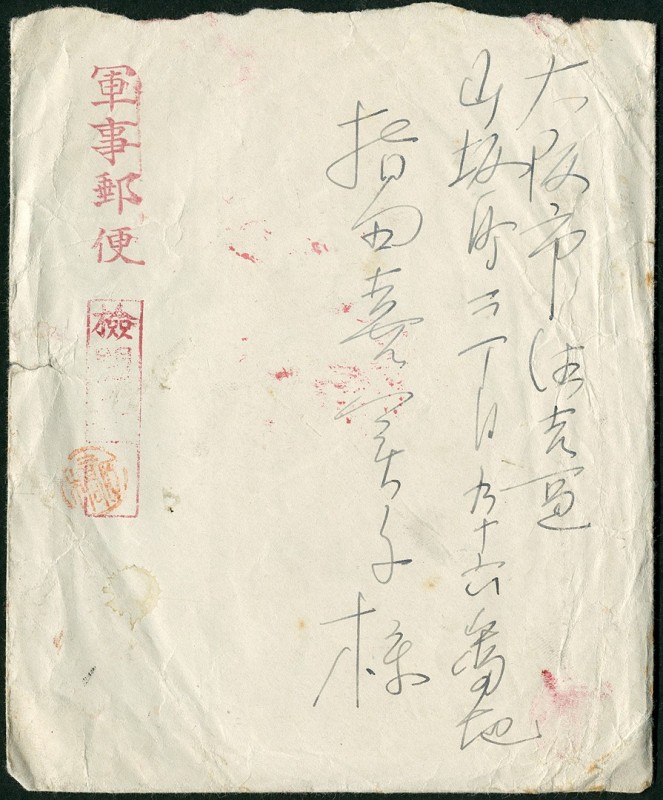 大阪市住吉區
山坂町三丁目九十六番地
指田 子様
軍事郵便
檢